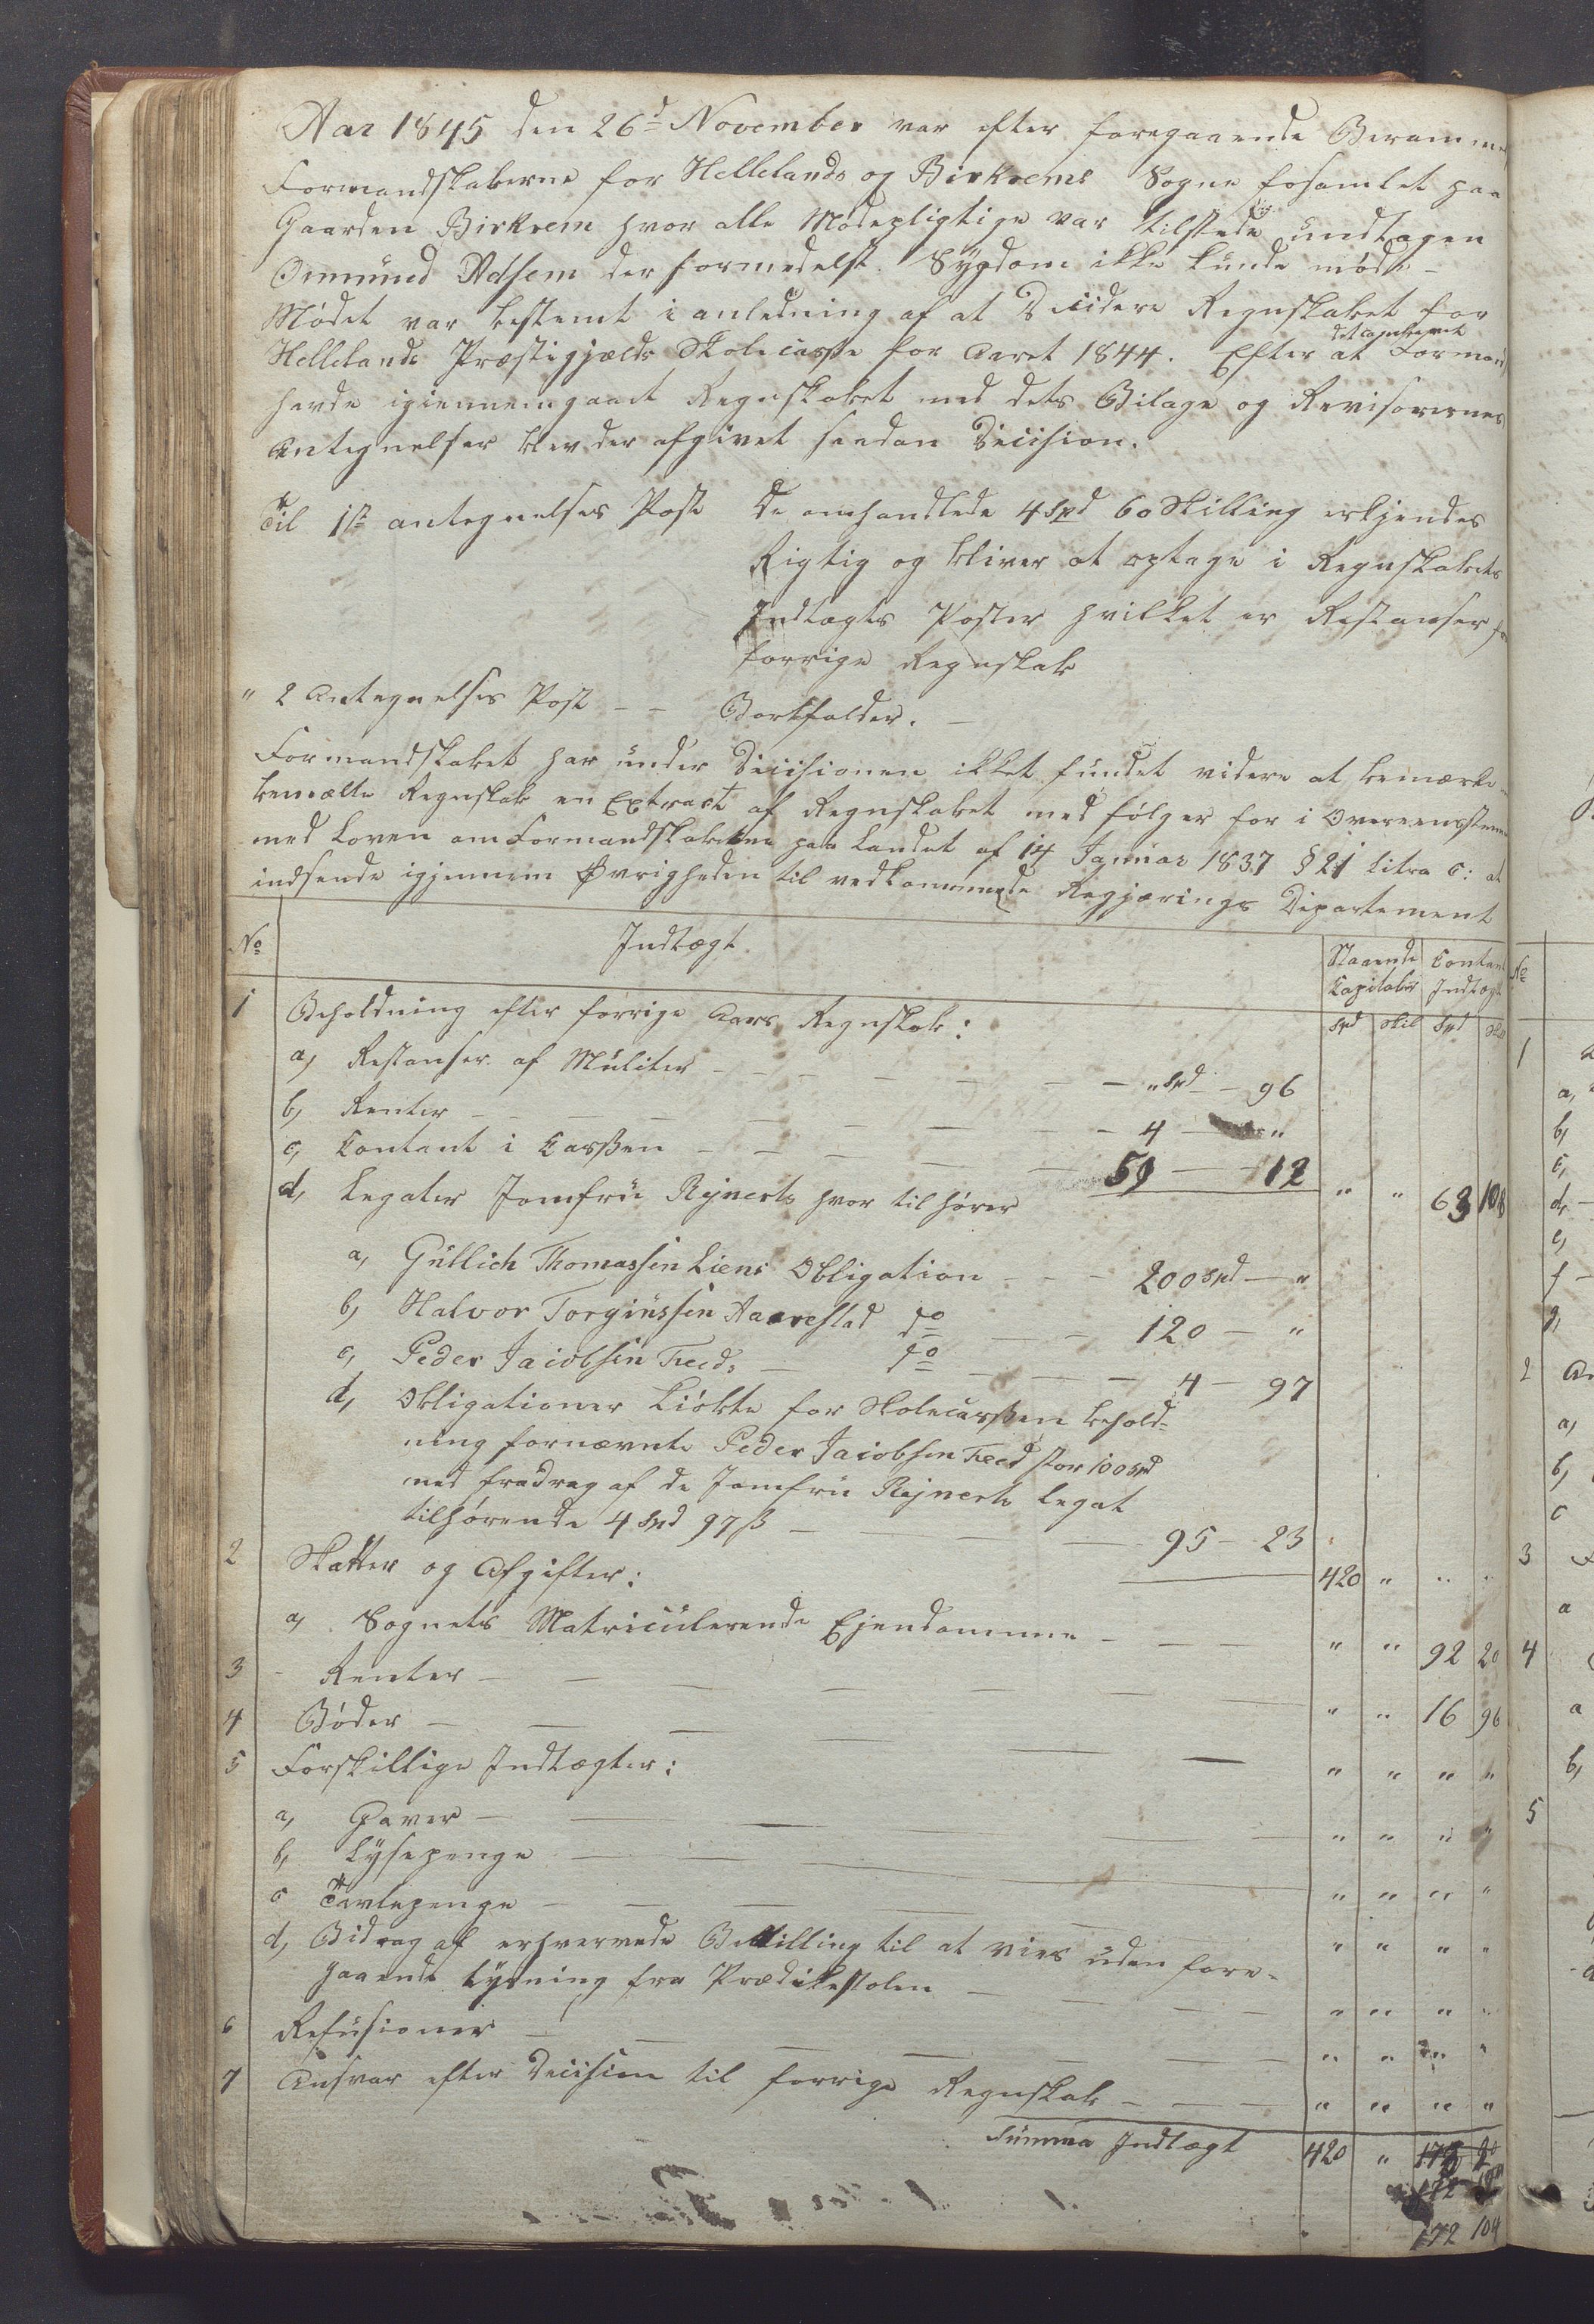 Aar 1845 den 26d November var efter foregaaende Beramme
Formandskaberne for Hellelands og Birkrems Sogne forsamlet paa
Gaarden Birkrem hvor alle Mødepligtige var tilstede undtagen
Ommund Adsem der formedelst Sygdom ikke kunde møde -
Mødet var bestemt i anledning af at Decidere Regnskabet for
Hellelands Præstegjelds Skolecasse for Aaret 1844. Efter at Formand
havde igiennemgaaet Regnskabet med dets Bilage og Revisorernes
Antegnelser blev der afgivet saadan Decision.
Til 1ste antegnelses Post De omhandlede 4 Spd 60 Skilling erkjendes
Rigtig og bliver at optage i Regnskabets
Indtægts Poster hvilket er Restanser
forrige Regnskab
" 2 Antegnelses Post - - Bortfalder. -
Formandskabet har under Decisionen ikket fundet videre at bemærke
bemælte Regnskab en Extract af Regnskabet medfølger for i Overeensstem
med Loven om Formandskaberne paa Landet af 14 Januar 1837 § 21 Litra c: at
indsende igjennem Øvrigheden til vedkommende Regjærings Departement
No Indtægt Staaende Capitaler Contant Indtægt
Spd Skil Spd Skil
1 Beholdning efter forrige Aars Regnskab:
a, Restanser af Muliter - - - " Spd - 96
b, Renter - - - 4 - "
c, Contant i Cassen - - - 59 - 12 " " 63 108
d, Legater Jomfru Rejnerts hvor til hører
a, Gullich Thomassen Liens Obligation - - - 200 Spd - "
b, Halvor Torginssen Aarrestad do - - 120 - "
c, Peder Jacobsen Treds - do - - - 4 - 97
d, Obligationer Kiøbte for Skolecassen behold-
ning fornævnte Peder Jacobsen Tred stor 100 Spd
med fradrag af de Jomfru Rejnerts Legat
tilhørende 4 Spd 97 ß - - - 95 - 23
420 " " "
2 Skatter og Afgifter:
a, Sognets Matriculerende Ejendomme - - - " " 92 20
3 - Renter - - - " " 16 96
4 Bøder - - - " " " "
5 Forskillige Indtægter:
a, Gaver - - - " " " "
b, Lysepenge - - - " " " "
c Tavlepenge - - - " " " "
d, Bidrag af erhvervede Bevilling til at vies uden fore-
gaaende Lysning fra Prædikestolen - - - " " " "
6 Refusioner - - - " " " "
7 Ansvar efter Decision til forrige Regnskab - - - " " " "
Summa Indtægt 420 "
172 104